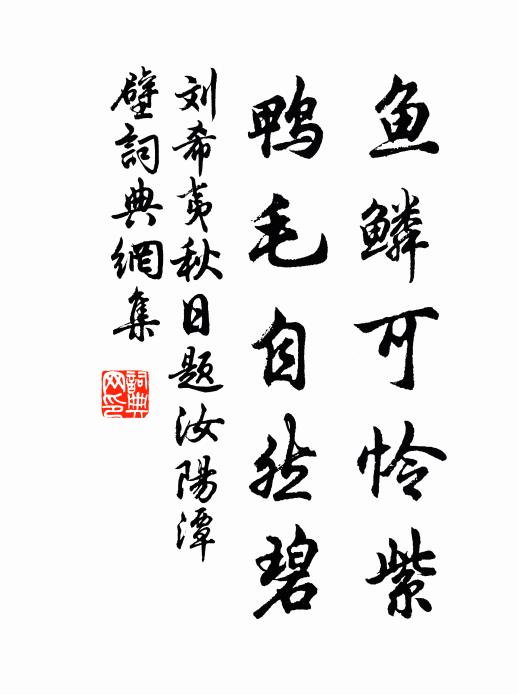 鱼鳞可怜紫
鸭毛自然碧
刘希夷秋日题汝陽潭
壁詞典網集
詞典
网印